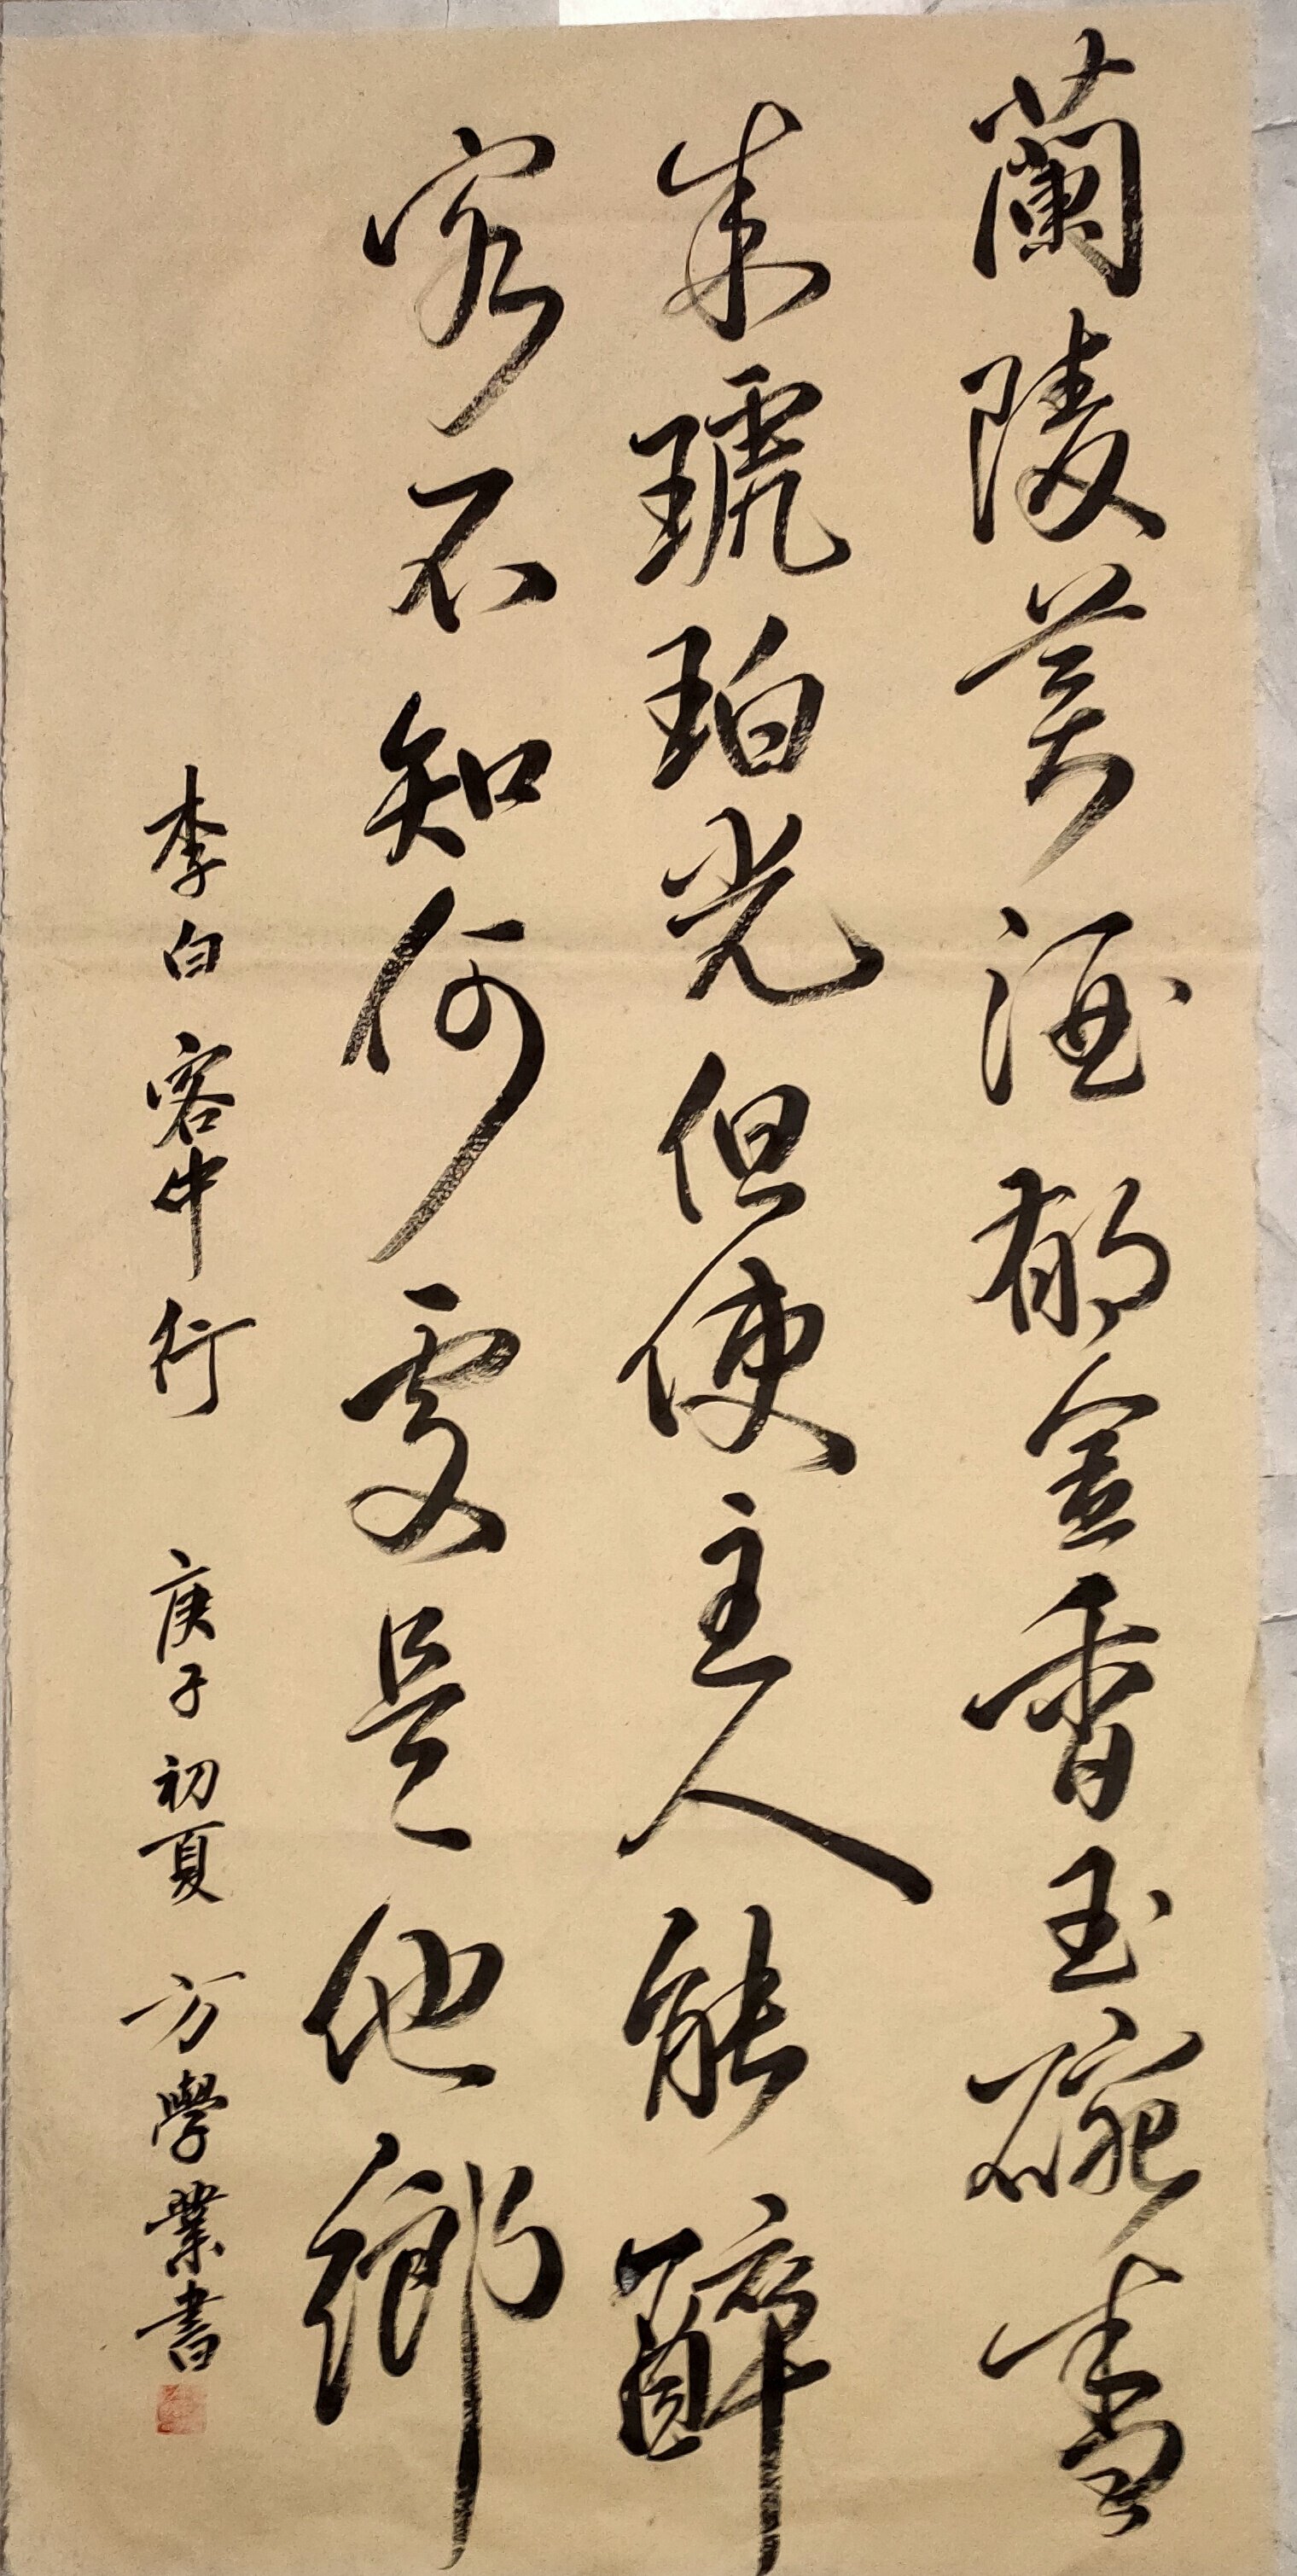 蘭陵美酒郁金香玉碗盛
来琥珀光但使主人能醉
客不知何處是他鄉
李白客中行 庚子初夏 方學業書